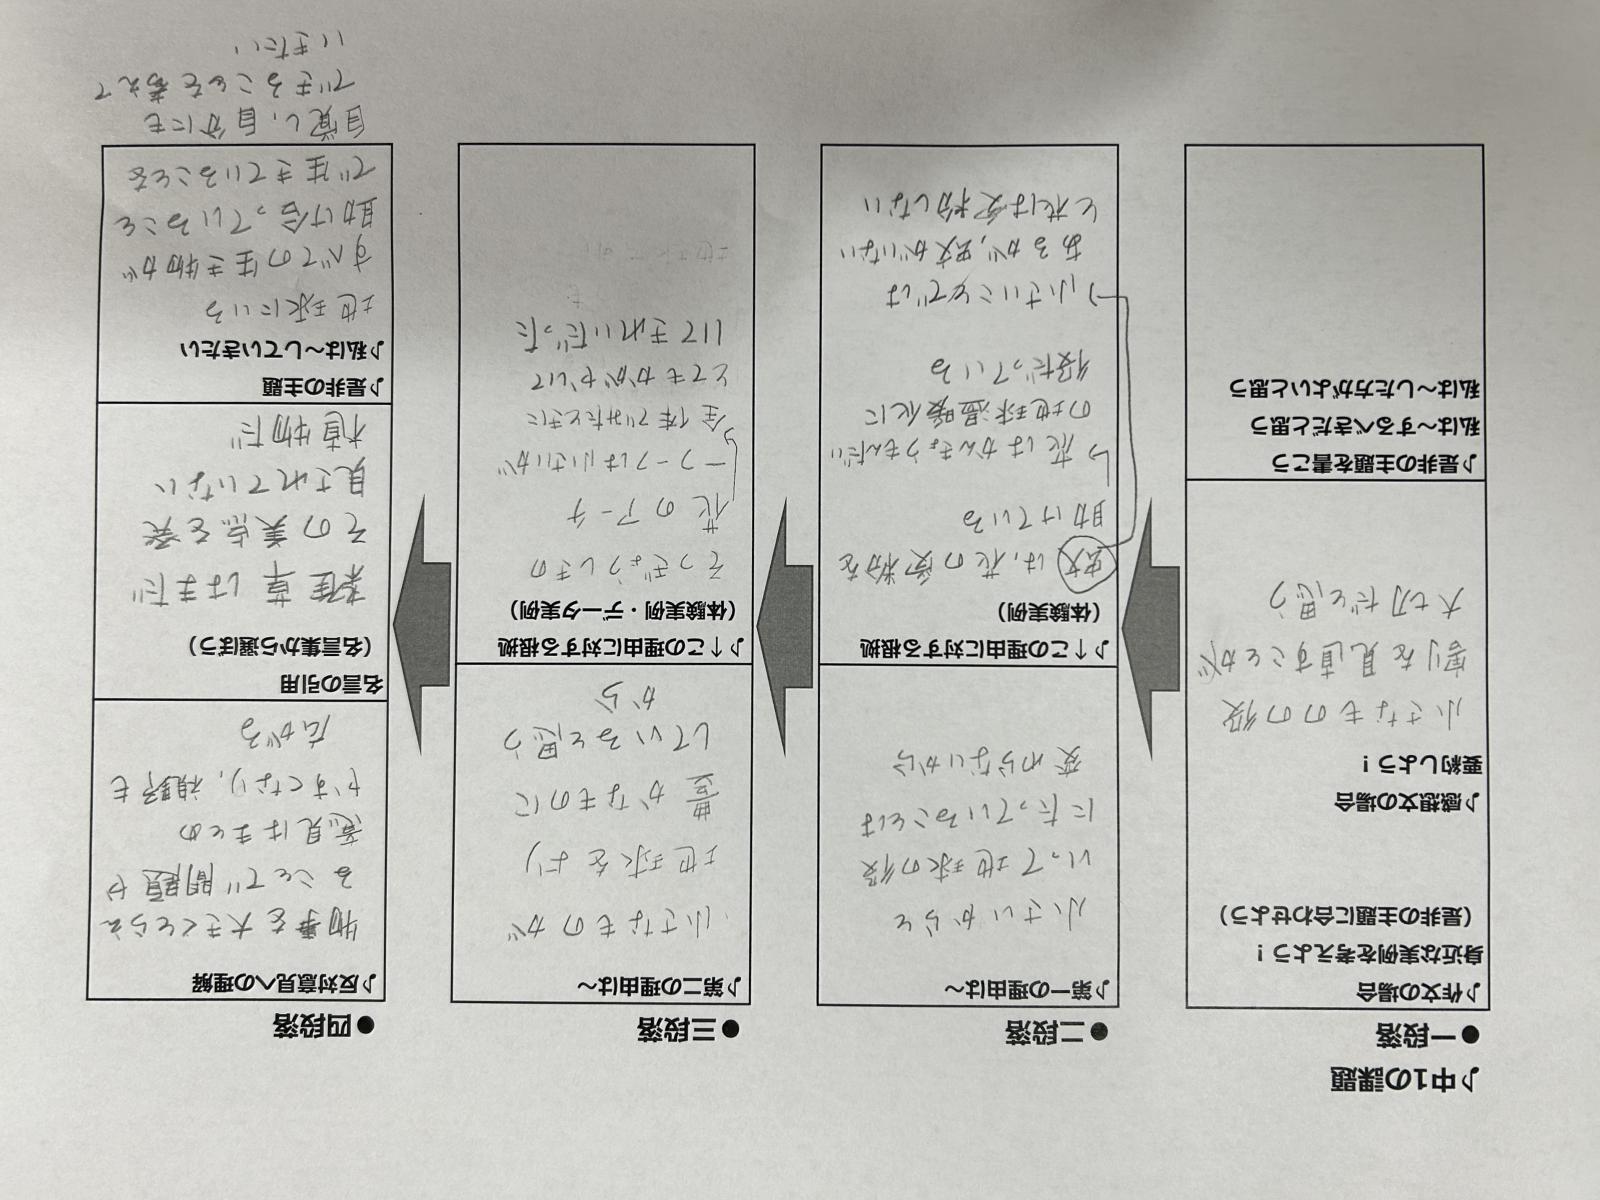 ♪中1の課題
●一段落
♪作文の場合
身近な実例を考えよう！
（是非の主題に合わせよう）
♪感想文の場合
要約しよう！
小さなものの役
割りを見直すことが
大切だと思う
♪是非の主題を書こう
私は～するべきだと思う
私は～した方がよいと思う
●二段落
♪第一の理由は～
小さいからと
いって地球の役
にたっていることは
変わらないから
♪↑この理由に対する根拠
（体験実例）
蚊は、花の受粉を
助けている
↳花はかんきょうもんだい
の地球温暖化に
役だっている
↳小さいことでは
あるが、蚊がいない
と花は受粉しない
●三段落
♪第二の理由は～
小さなものが
地球をより
豊かなものに
していると思う
から
♪↑この理由に対する根拠
（体験実例・データ実例）
そつぎょうしきの
花のアーチ
一つ一つは小さいが
全体でみたときに
とてもかがやいて
いてきれいだった
●四段落
♪反対意見への理解
物事を大きくとらえ
ることで問題や
意見はまとめ
やすくなり、視野も
広がる
名言の引用
（名言集から選ぼう）
雑草はまだ
その美点を発
見されていない
植物だ
♪是非の主題
♪私は～していきたい
地球にいる
すべての生き物が
助け合っていること
で生きていることを
自覚し、自分にも
できることを考えて
いきたい